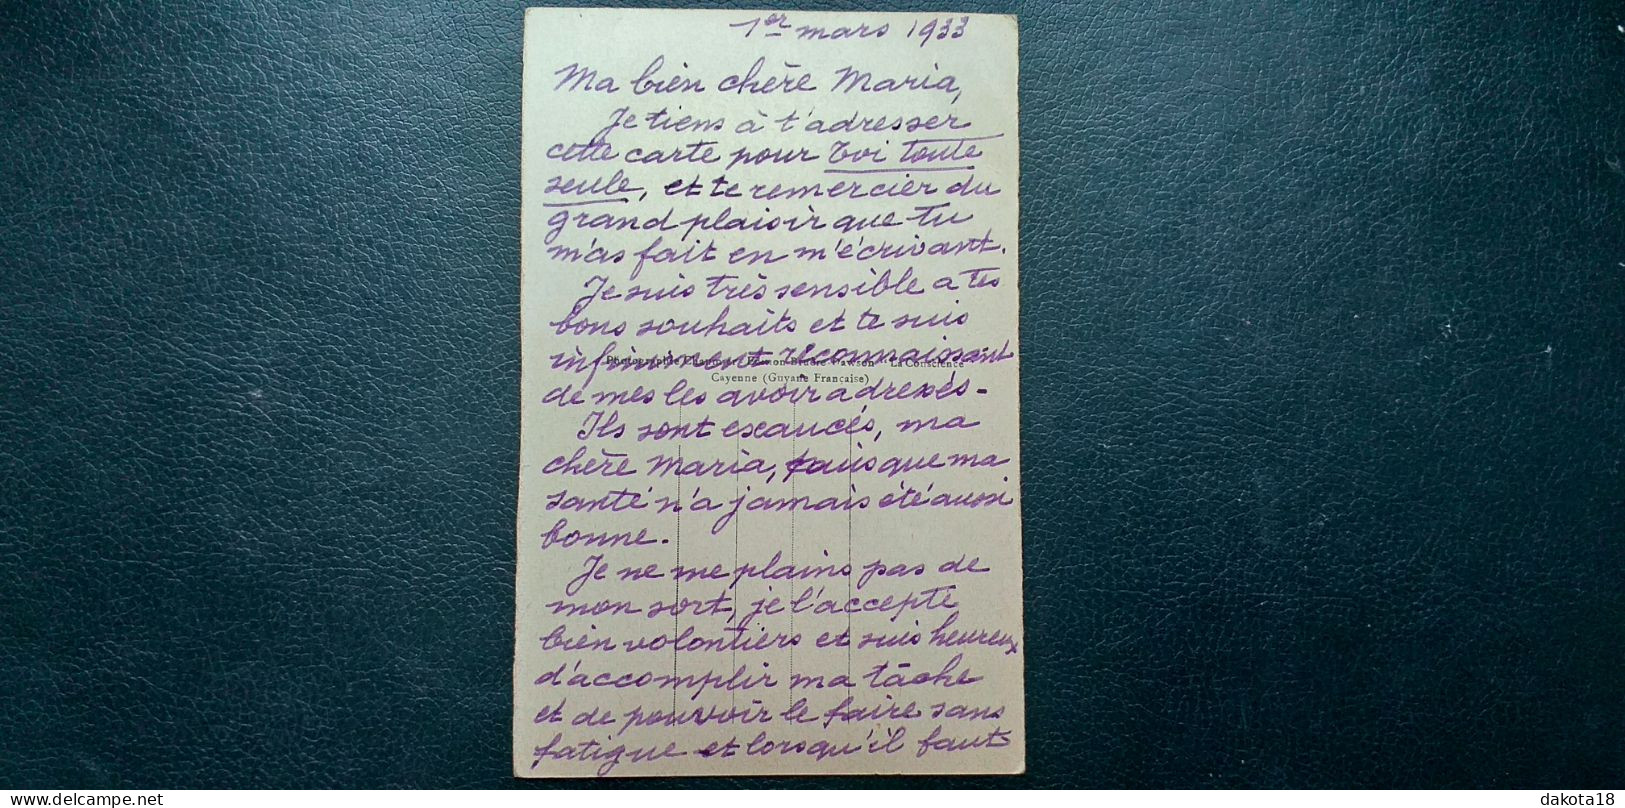 1er mars 1933
Ma bien chère Maria,
Je tiens à t'adresser
cette carte pour Toi toute
seule, et te remercier du
grand plaisir que tu
m'as fait en m'écrivant.
Je suis très sensible a tes
bons souhaits et te suis
infiniment reconnaissant
Photographie La Conscience
Cayenne (Guyane Française)
de mes les avoir adressés -
Ils sont exaucés, ma
chère Maria, puisque ma
santé n'a jamais été aussi
bonne.
Je ne me plains pas de
mon sort, je l'accepte
bien volontiers et suis heureux
d'accomplir ma tâche
et de pouvoir le faire sans
fatigue et lorsqu'il faut
dakota18